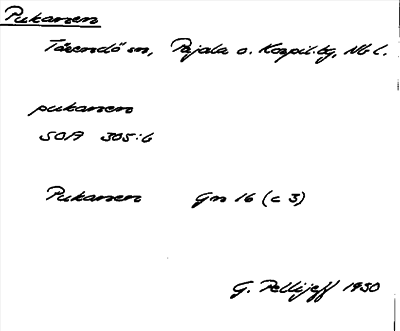 Pukanen
Tärendö sn, Pajala o. Korpil. tg, Nb l.
pukanen
SOA 305:6
Pukanen Gn 16 (c 3)
G. Pellijeff 1930